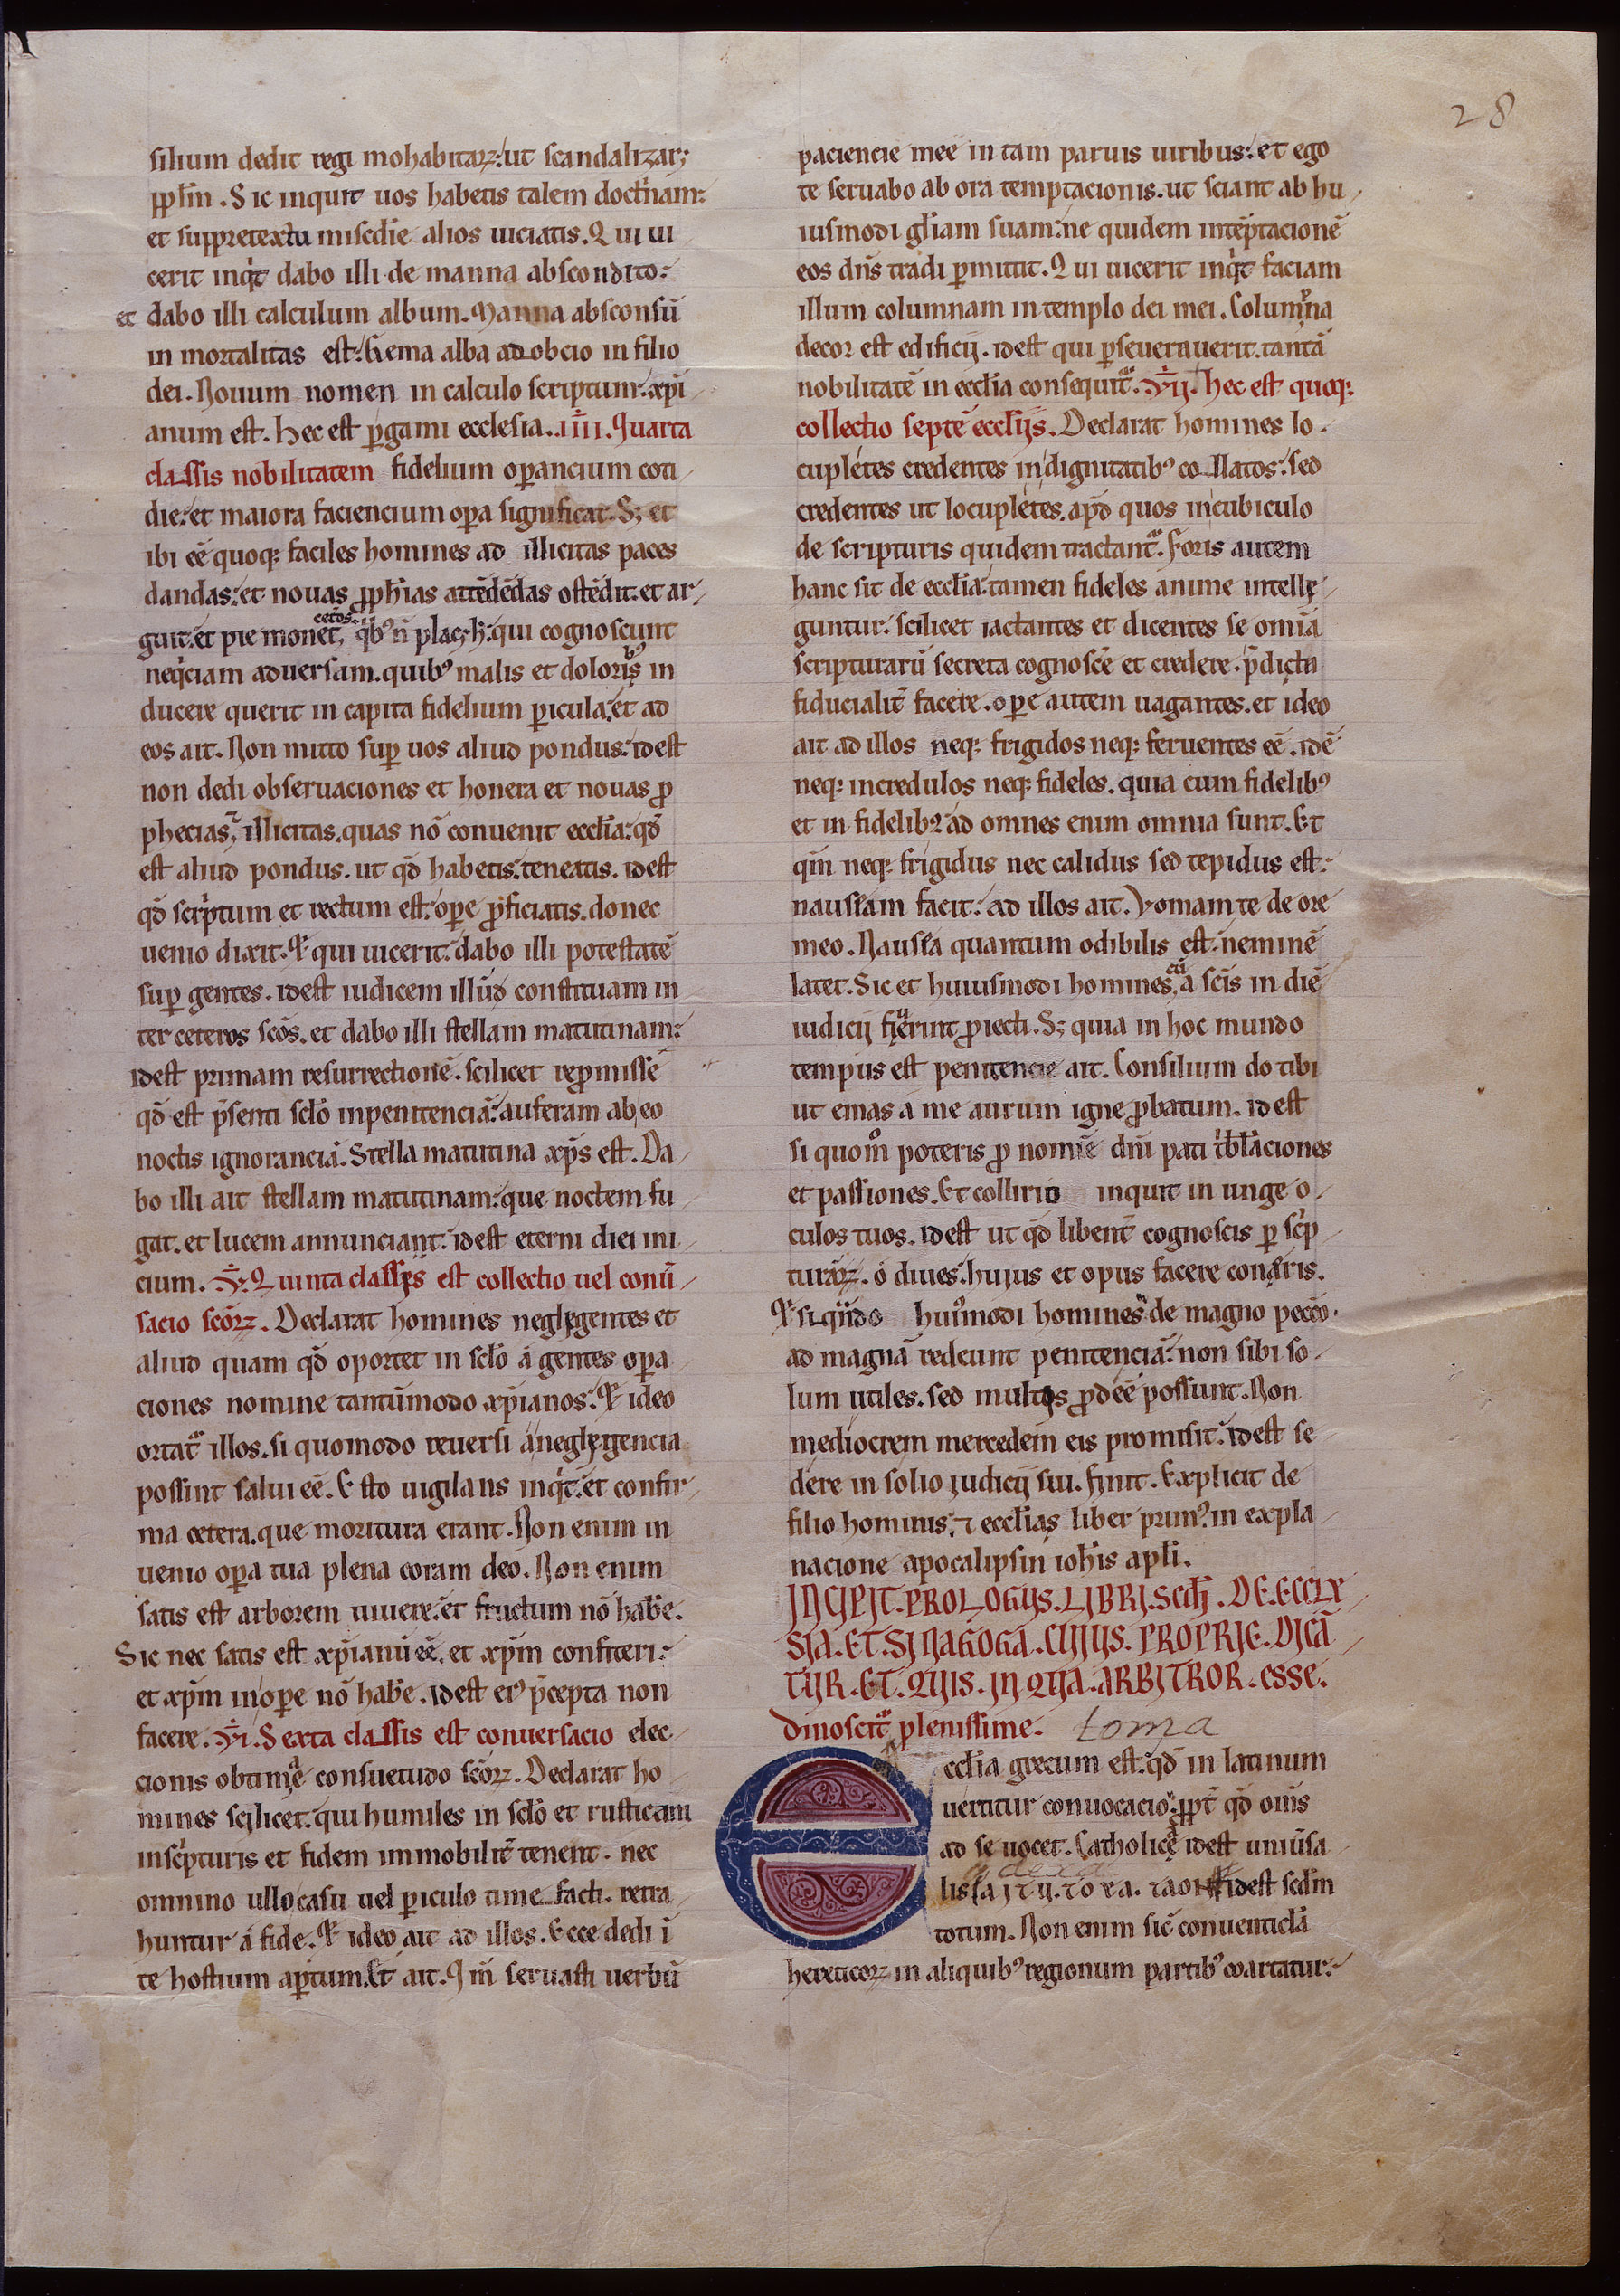 28
silium dedit regi mohabitaꝝ: ut scandalizar;
pplm̅. Sic inquit uos habetis talem doctrinam:
et suppretextu misc̅die alios uiciatis. Qui ui
cerit inqͥt dabo illi de manna abscondito:
et dabo illi calculum album. Manna absconsū
in mortalitas est. Gema alba adobcio in filio
dei. Nouum nomen in calculo scriptum: xp̅i
anum est. Hec est ꝑgami ecclesia. IIII. Quarta
classis nobilitatem fidelium oꝑancium coti
die: et maiora faciencium oꝑa significat. Sꝫ et
ibi eē quoqꝫ faciles homines ad illicitas paces
dandas: et nouas ꝓph̅ias attēdēdas ostēdit: et ar
guit: et pie monet, cet̅os qͥbꝰ n̅ placꝫ h: qui cognoscunt
neqͥciam aduersam. quibꝰ malis et doloribꝰ in
ducere querit in capita fidelium ꝑicula, et ad
eos ait. Non mitto suꝑ uos aliud pondus: idest
non dedi obseruaciones et honera et nouas ꝓ
phecias illicitas. quas nō conuenit eccl̅ia: qd̅
est aliud pondus. ut qd̅ habetis: teneatis. idest
qd̅ scrͥptum et rectum est: oꝑe ꝓficiatis. donec
uenio dixit. Et qui uicerit: dabo illi potestatē
suꝑ gentes. idest iudicem illud constituam in
ter ceteros sc̅os. et dabo illi stellam matutinam:
idest primam resurrectionē. scilicet reꝓmissē
qd̅ est p̅senti scl̅o inpenitenciā: auferam ab eo
noctis ignoranciā. Stella matutina xp̅s est. Da
bo illi ait stellam matutinam: que noctem fu
gat. et lucem annunciant: idest eterni diei ini
cium. V. Quinta classis est collectio uel conū
sacio sc̅oꝝ. Declarat homines neglegentes et
aliud quam qd̅ oportet in scl̅o agentes oꝑa
ciones nomine tantūmodo xp̅ianos: Et ideo
ortatᷓ illos. si quomodo reuersi a neglegencia
possint salui eē. Esto uigilans inqͥt: et confir
ma cetera. que moritura erant. Non enim in
uenio oꝑa tua plena coram deo. Non enim
satis est arborem uiuere: et fructum nō hab̅e.
Sic nec satis est xp̅ianū eē. et xp̅m confiteri:
et xp̅m in oꝑe nō hab̅e. idest eiꝰ p̅cepta non
facere. VI. Sexta classis est conuersacio elec
cionis obtime consuetudo sc̅oꝝ. Declarat ho
mines scilicet. qui humiles in scl̅o et rusticam
inscrͥpturis et fidem immobilit̅ tenent. nec
omnino ullo casu uel ꝑiculo time facti. retra
huntur a fide. Et ideo ait ad illos. Ecce dedi ī
te hostium aꝑtum. Et ait. Qm̅ seruasti uerbū
paciencie mee in tam paruis uiribus: et ego
te seruabo ab ora temptacionis. ut sciant ab hu
iusmodi gl̅iam suam: ne quidem intēptacionē
eos dn̅s tradi ꝑmittit. Qui uicerit inqͥt faciam
illum columnam in templo dei mei. Columna
decor est edificij. idest qui ꝑseuerauerit. tantā
nobilitatē in eccl̅ia consequitᷓ. VII. Hec est quoqꝫ
collectio septē eccl̅ijs. Declarat homines lo
cupletes credentes in dignitatibꝰ collatos: sed
credentes ut locupletes. apd̅ quos in cubiculo
de scripturis quidem tractantᷓ. Foris autem
hanc sit de eccl̅ia: tamen fideles anime intelle
guntur: scilicet iactantes et dicentes se omīa
scripturarū secreta cognoscē et credere. p̅dicta
fiducialit̅ facere. oꝑe autem uagantes. et ideo
ait ad illos neqꝫ frigidos neqꝫ feruentes eē. idē
neqꝫ incredulos neqꝫ fideles. quia cum fidelibꝰ
et in fidelibꝰ ad omnes enim omnia sunt. Et
qm̅ neqꝫ frigidus nec calidus sed tepidus est:
nausīam facit: ad illos ait. Vomam te de ore
meo. Nausīa quantum odibilis est: neminē
latet. Sic et huiusmodi homines, cū a sc̅is in diē
iudicij fuerint ꝓiecti. Sꝫ quia in hoc mundo
tempus est penitencie ait. Consilium do tibi
ut emas a me aurum igne ꝓbatum. idest
si quom̊ poteris ꝓ nomīe dn̅i pati tͥbl̅aciones
et passiones. Et collirio inquit in unge o
culos tuos. idest ut qd̅ libent̅ cognoscis ꝑ scͥp
turaꝝ. o diues. hujus et opus facere conaris.
Et siqͥdo huꝰmodi homines de magno pecc̅o
ad magnā redeunt penitenciā: non sibi so
lum utiles. sed multis ꝓdeē possunt. Non
mediocrem mercedem eis promisit: idest se
dere in solio judicij sui. finit. Explicit de
filio hominis, ⁊ eccl̅ias liber primꝰ in expla
nacione apocalipsin ioh̅is apl̅i.
INCIPIT. PROLOGUS. LIBRI. Scd̅I. DE. ECCLE
SIA. ET. SINAGOGA. CUIUS. PROPRIE. DICĀ
TUR. ET. QUIS. IN QUA. ARBITROR. ESSE.
dinoscitᷓ plenissime. toma
Eccl̅ia grecum est: qd̅ in latinum
uertitur conuocacio: ꝓpt̅ qd̅ oīns
ad se uocet. Catholice idest uniūsa
lis idest scd̅m
totum. Non enim sic̅ conuenticl̅a
hereticoꝝ in aliquibꝰ regionum partibꝰ coartatur: